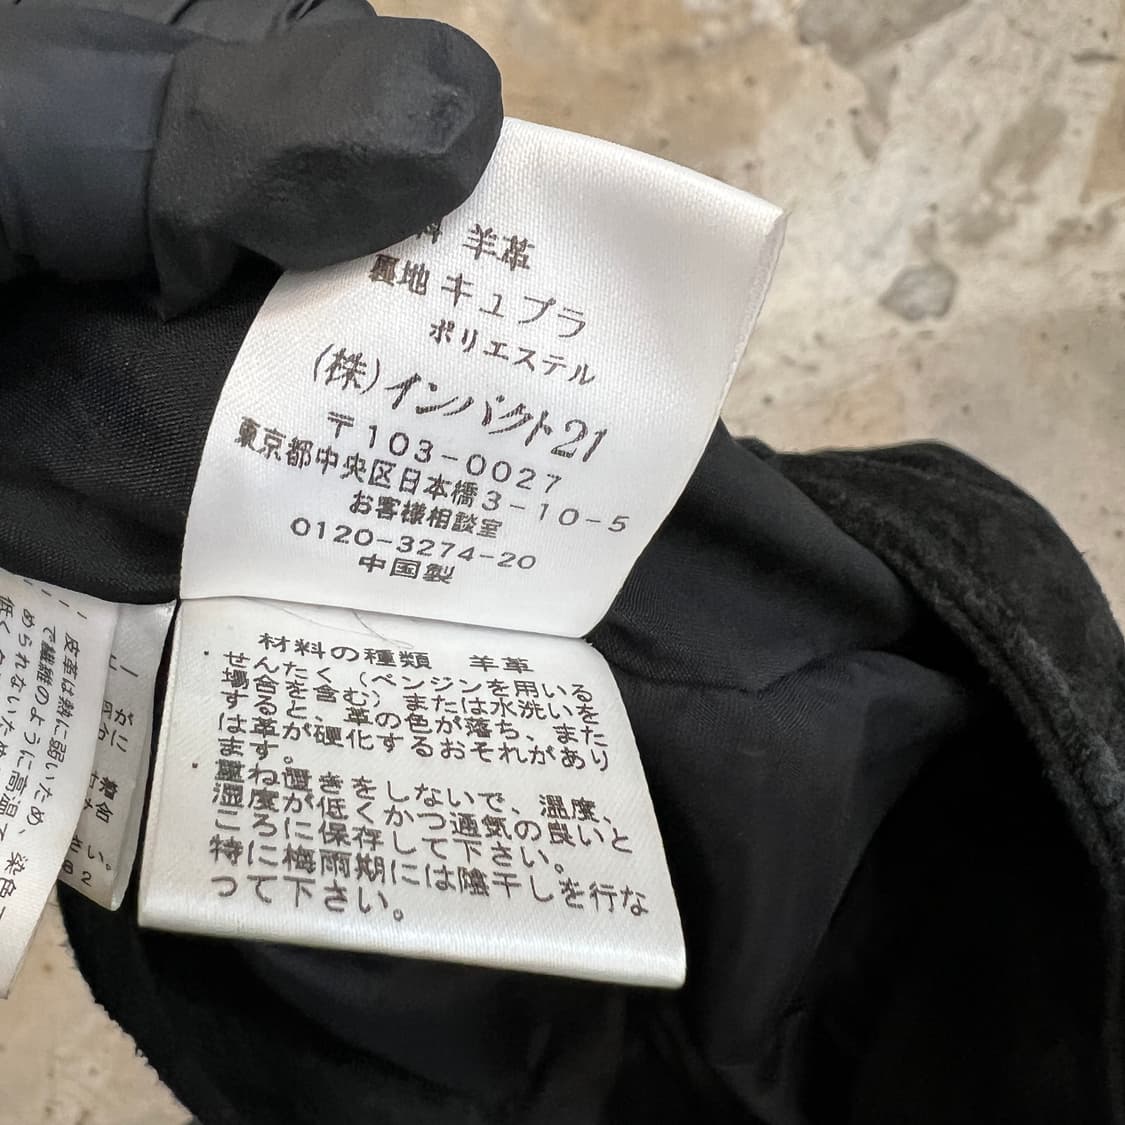 料 羊革
裏地 キュプラ
ポリエステル
(株)インパクト21
〒103-0027
東京都中央区日本橋3-10-5
お客様相談室
0120-3274-20
中国製
材料の種類 羊革
・せんたく(ベンジンを用いる
場合を含む)または水洗いを
すると、革の色が落ち、また
は革が硬化するおそれがあり
ます。
・重ね置きをしないで、温度、
湿度が低くかつ通気の良いと
ころに保存して下さい。
特に梅雨期には陰干しを行な
って下さい。
皮革は熱に弱いため、
で繊維のように高温で
められないため